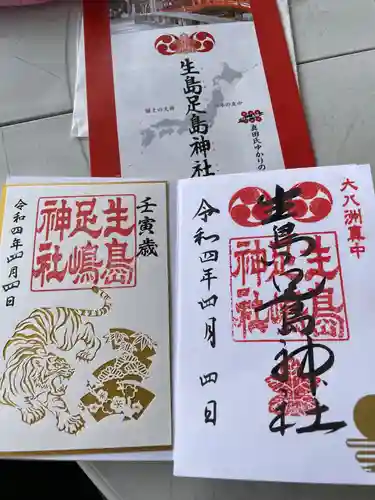 生島足島神社
真田氏ゆかりの
壬寅歳
生島
足嶋
神社
令和四年四月四日
大八洲真中
生島足島神社
生島
足嶋
神社
令和四年四月四日